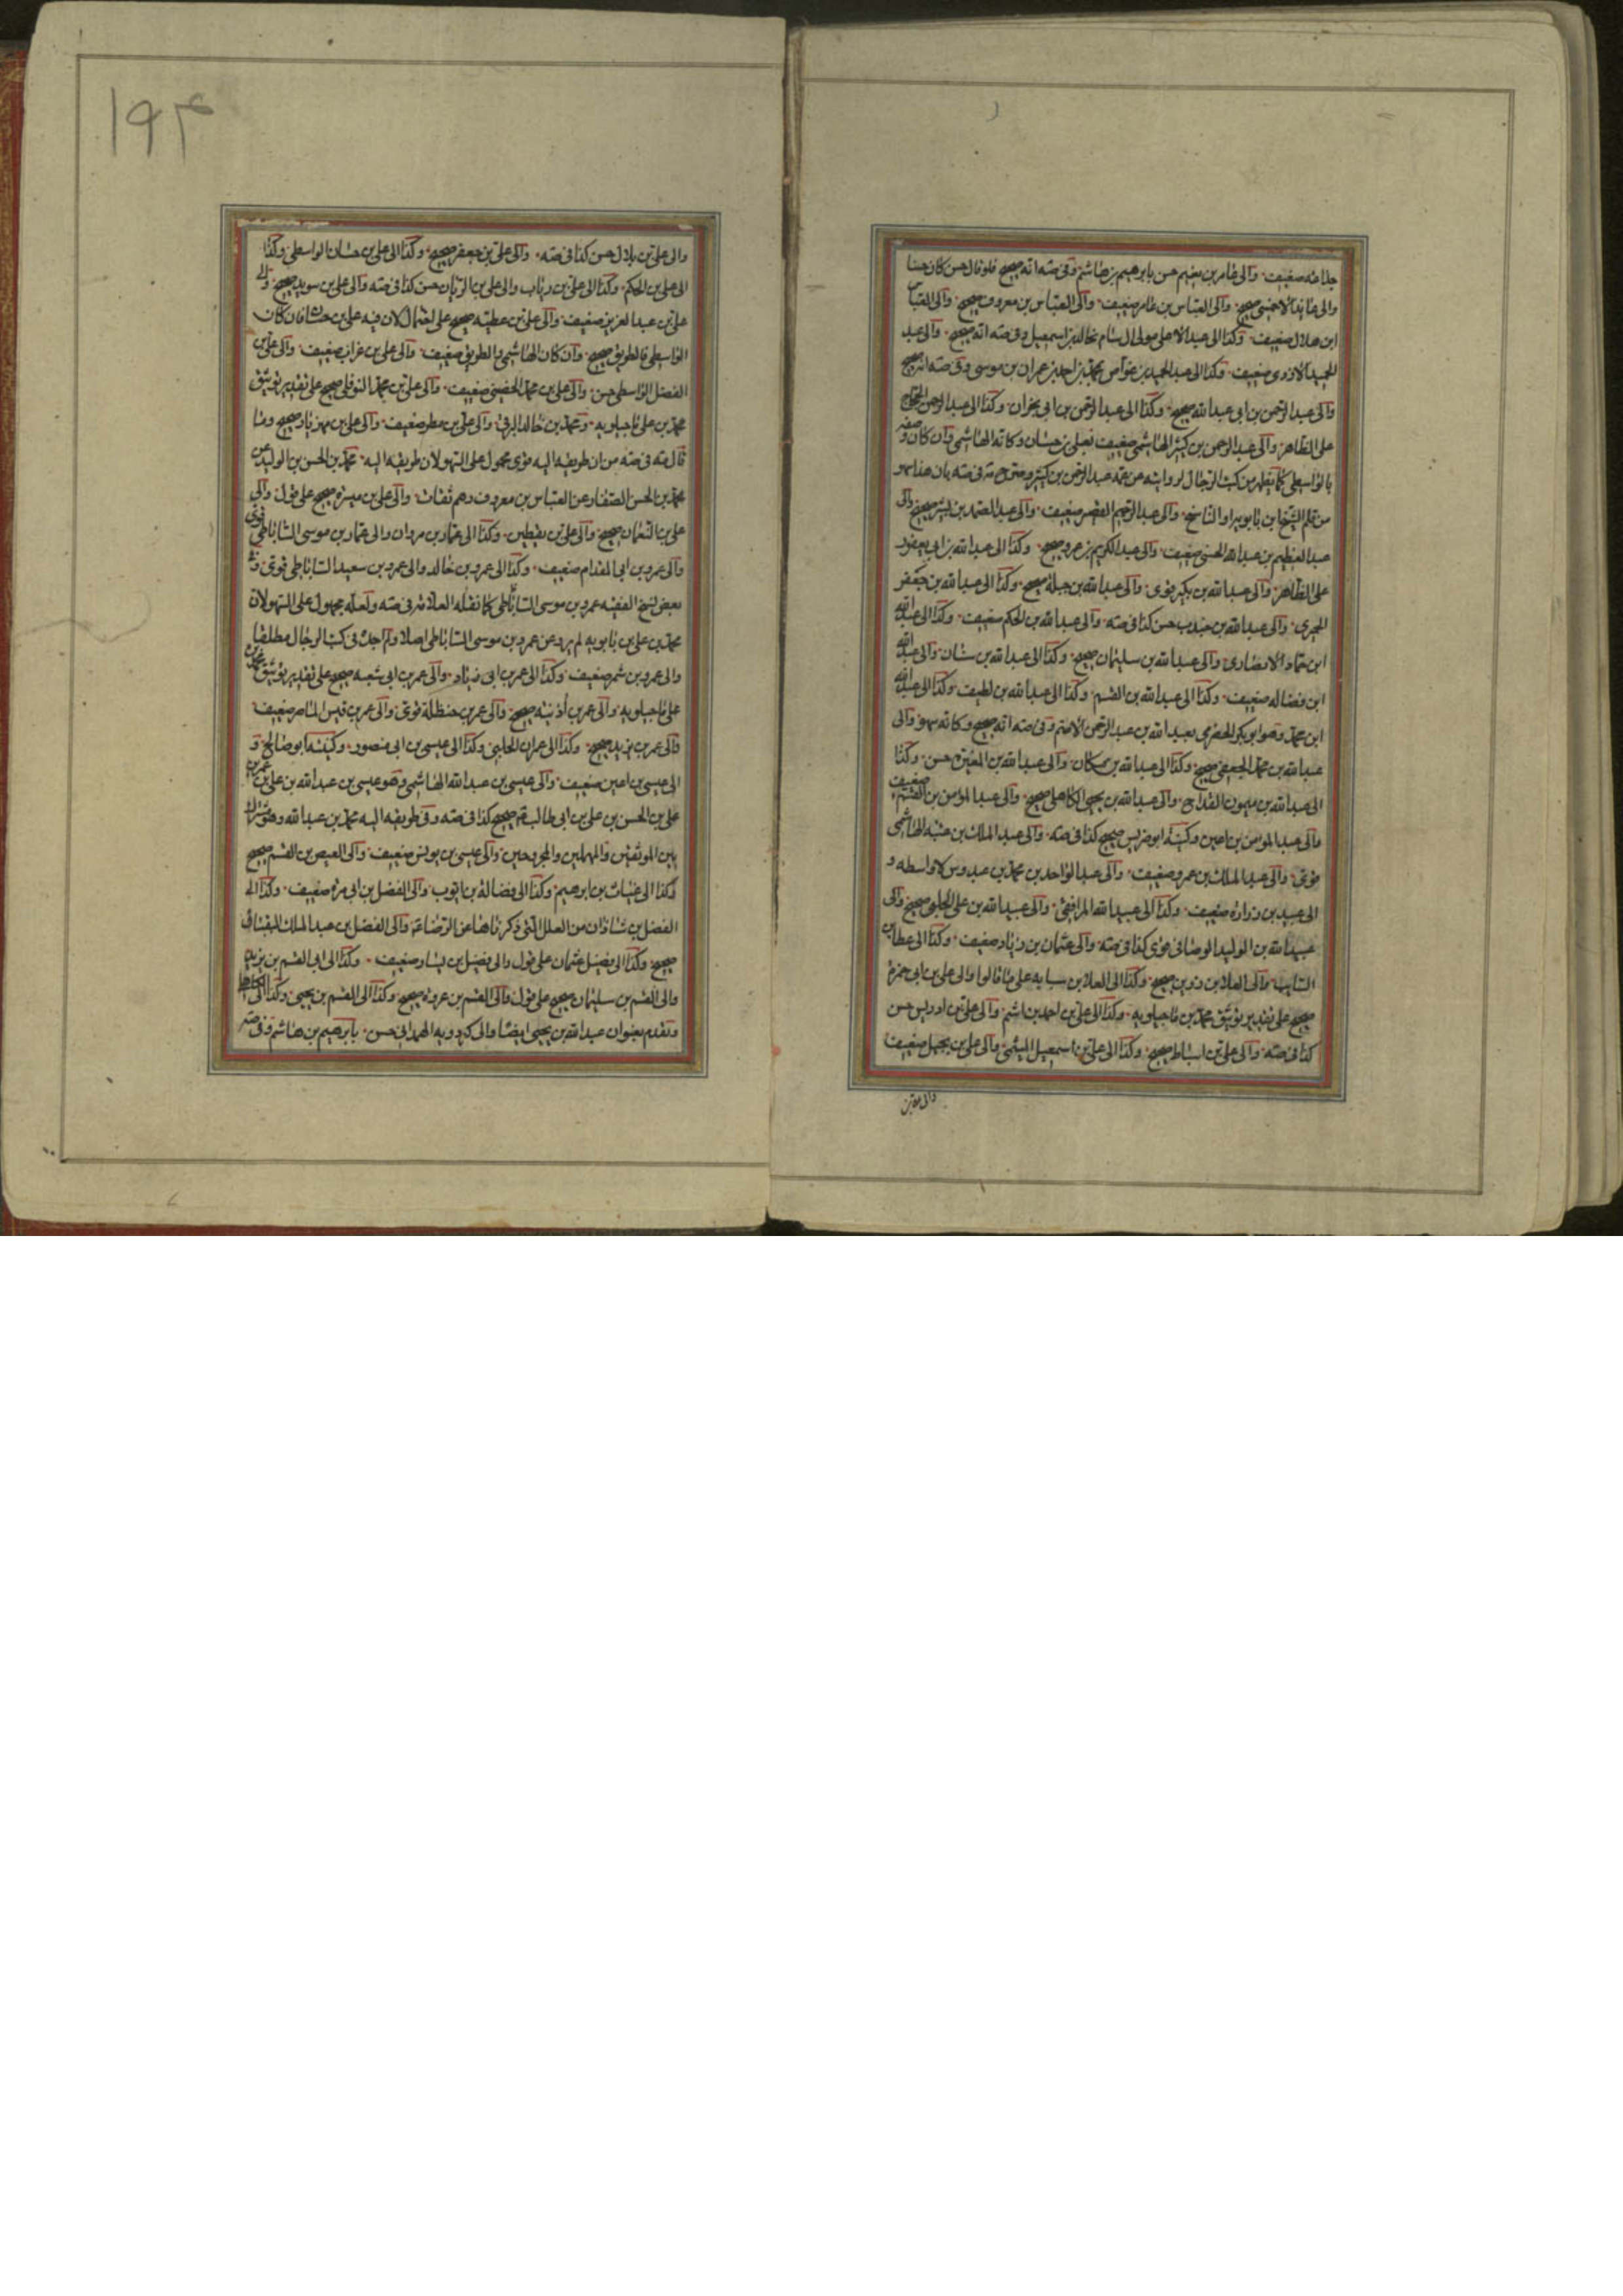 جذاعه ضعيف والى عامر بن نعيم حسن بابرهيم بن هاشم وفى صه انه صحيح فلو قال حسن كان حسنا
والى عائذ الاحمسى صحيح والى العباس بن عامر ضعيف والى العباس بن معروف صحيح والى العباس
ابن هلال ضعيف وكذا الى عبد الاعلى مولى ال سام بخالد بن اسمعيل وفى صه انه صحيح والى عبد
الحميد الازدى ضعيف وكذا الى عبد الحميد بن عواض بمحمد بن احمد بن عمران بن موسى وفى صه انه صحيح
والى عبد الرحمن بن ابى عبد الله صحيح وكذا الى عبد الرحمن بن ابى نجران وكذا الى عبد الرحمن الحجاج
على الظاهر والى عبد الرحمن بن كثير الهاشمى ضعيف بعلى بن حسان وكانه الهاشمى وان كان وصفه
بالواسطى كما يظهر من كتب الرجال لروايته عن عمه عبد الرحمن بن كثير وصرح مة فى صه بان هذا سهو
من قلم الشيخ ابن بابويه او الناسخ والى عبد الرحيم القصير ضعيف والى عبد الصمد بن بشير صحيح والى
عبد العظيم بن عبد الله الحسنى ضعيف والى عبد الكريم بن عمرو صحيح وكذا الى عبد الله بن ابى يعفور
على الظاهر والى عبد الله بن بكير قوى والى عبد الله بن جبلة صحيح وكذا الى عبد الله بن جعفر
الحميرى والى عبد الله بن جندب حسن كذا فى صه والى عبد الله بن الحكم ضعيف وكذا الى عبد الله
ابن حماد الانصارى والى عبد الله بن سليمان صحيح وكذا الى عبد الله بن سنان والى عبد الله
ابن فضاله ضعيف وكذا الى عبد الله بن القسم وكذا الى عبد الله بن لطيف وكذا الى عبد الله
ابن محمد وهو ابو بكر الحضرمى بعبد الله بن عبد الرحمن الاصم وفى صه انه صحيح وكانه سهو والى
عبد الله بن محمد الجعفى صحيح وكذا الى عبد الله بن مسكان والى عبد الله بن المغيرة حسن وكذا
الى عبد الله بن ميمون القداح والى عبد الله بن يحيى الكاهلى صحيح والى عبد المؤمن بن القسم ضعيف
والى عبد المؤمن بن اعين وكنيته ابو ضريس صحيح كذا فى صه والى عبد الملك بن عتبه الهاشمى
قوى والى عبد الملك بن عمرو ضعيف والى عبد الواحد بن محمد بن عبدوس لا واسطه و
الى عبيد بن زرارة ضعيف وكذا الى عبيد الله المرافقى والى عبيد الله بن على الحلبى صحيح والى
عبيد الله بن الوليد الوصافى قوى كذا فى صه والى عثمان بن زياد ضعيف وكذا الى عطا بن
السايب والى العلا بن رزين صحيح وكذا الى العلا بن سيابه على ما قالوا والى على بن ابى حمزة
صحيح على تقدير توثيق محمد بن ماجيلويه وكذا الى على بن احمد بن اشيم والى على بن ادريس حسن
كذا فى صه والى على بن اسباط صحيح وكذا الى على بن اسمعيل الميثمى والى على بن بجيل ضعيف
۱۹۴
والى على بن بلال حسن كذا فى صه والى على بن جعفر صحيح وكذا الى على بن حسان الواسطى وكذا
الى على بن الحكم وكذا الى على بن رئاب والى على بن الريان حسن كذا فى صه والى على بن سويد صحيح والى
على بن عبد العزيز ضعيف والى على بن عطيه صحيح على احتمال لان فيه على بن حسان فان كان
الواسطى فالطريق صحيح وان كان الهاشمى فالطريق ضعيف والى على بن غراب ضعيف والى على بن
الفضل الواسطى حسن والى على بن محمد الحضينى ضعيف والى على بن محمد النوفلى صحيح على تقدير توثيق
محمد بن على ماجيلويه ومحمد بن خالد البرقى والى على بن مطر ضعيف والى على بن مهزيار صحيح وما
قال مة فى صه من ان طريقه اليه قوى محمول على السهو لان طريقه اليه محمد بن الحسن بن الوليد عن
محمد بن الحسن الصفار عن العباس بن معروف وهم ثقات والى على بن ميسرة صحيح على قول والى
على بن النعمان صحيح والى على بن يقطين وكذا الى عمار بن مروان والى عمار بن موسى الساباطى قوى
والى عمرو بن ابى المقدام ضعيف وكذا الى عمرو بن خالد والى عمرو بن سعيد الساباطى قوى وفى
بعض نسخ الفقيه عمرو بن موسى الساباطى كما نقله العلامة فى صه ولعله محمول على السهو لان
محمد بن على بن بابويه لم يرو عن عمرو بن موسى الساباطى اصلا ولم اجده فى كتب الرجال مطلقا
والى عمرو بن شمر ضعيف وكذا الى عمر بن ابى زياد والى عمر بن ابى شعبه صحيح على تقدير توثيق محمد بن
على ماجيلويه والى عمر بن أذينه صحيح والى عمر بن حنظلة قوى والى عمر بن قيس الماصر ضعيف
والى عمر بن يزيد صحيح وكذا الى عمران الحلبى وكذا الى عيسى بن ابى منصور وكنيته ابو صالح و
الى عيسى بن اعين ضعيف والى عيسى بن عبد الله الهاشمى وهو عيسى بن عبد الله بن على بن عمر بن
على بن الحسن بن على بن ابى طالب صحيح كذا فى صه وفى طريقه اليه محمد بن عبد الله وهو مشترك
بين الموثقين والمهملين والمجروحين والى عيسى بن يونس ضعيف والى العيص بن القسم صحيح
وكذا الى غياث بن ابرهيم وكذا الى فضالة بن ايوب والى الفضل بن ابى مرة ضعيف وكذا الى
الفضل بن شاذان من العلل التى ذكرناها عن الرضا والى الفضل بن عبد الملك البقباق
صحيح وكذا الى فضيل عثمان على قول والى فضيل بن يسار ضعيف وكذا الى القسم بن يزيد
والى القسم بن سليمان صحيح على قول والى القسم بن عروة صحيح وكذا الى القسم بن يحيى وكذا الى الكاهلى
وتقدم بعنوان عبد الله بن يحيى ايضا والى كردويه الهمدانى حسن بابرهيم بن هاشم وفى صه